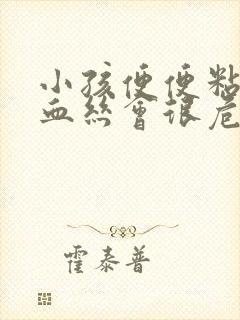 小孩便便粘
血丝会很危
霍泰普